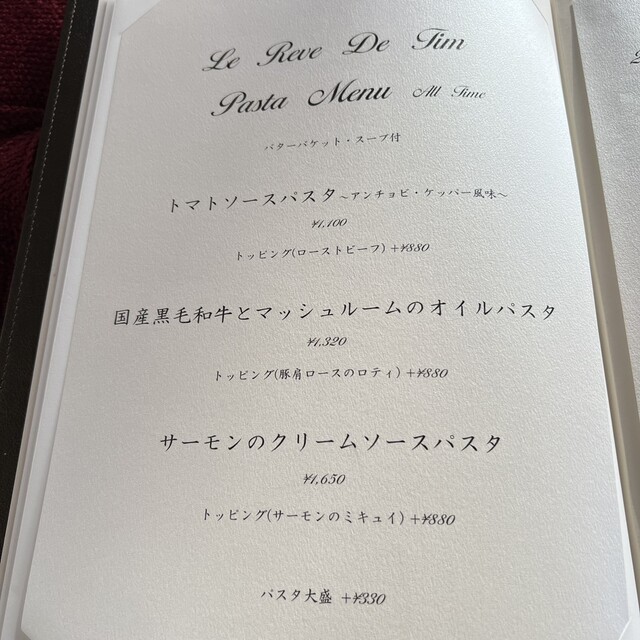 Le Reve De Tim
Pasta Menu All Time
バターバケット・スープ付
トマトソースパスタ～アンチョビ・ケッパー風味～
¥1,100
トッピング(ローストビーフ) +¥880
国産黒毛和牛とマッシュルームのオイルパスタ
¥1,320
トッピング(豚肩ロースのロティ) +¥880
サーモンのクリームソースパスタ
¥1,650
トッピング(サーモンのミキュイ) +¥880
パスタ大盛 +¥330